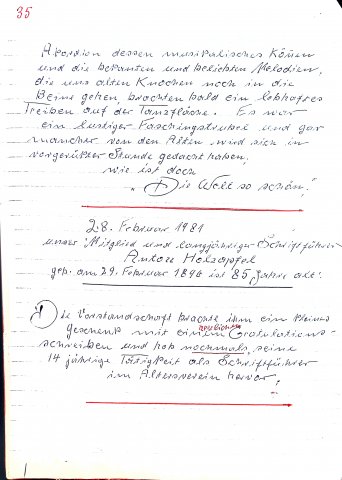 35
Akordion dessen musikalisches Können
und die bekannten und beliebten Melodien,
die uns alten Knochen noch in die
Beine gehen, brachten bald ein lebhaftes
Treiben auf der Tanzfläche. Es war
ein lustiger Faschingstrubel und gar
mancher von den Alten wird sich in
vorgerückter Stunde gedacht haben,
wie ist doch
"Die Welt so schön."
28. Februar 1981
unser Mitglied und langjähriger Schriftführer
Anton Holzapfel
geb. am 29. Februar 1896 ist 85 Jahre alt.
Die Vorstandschaft brachte ihm ein kleines
Geschenk mit einem Gratulations-
schreiben und hob nochmals, seine
14 jährige Tätigkeit als Schriftführer
im Altersverein hervor.